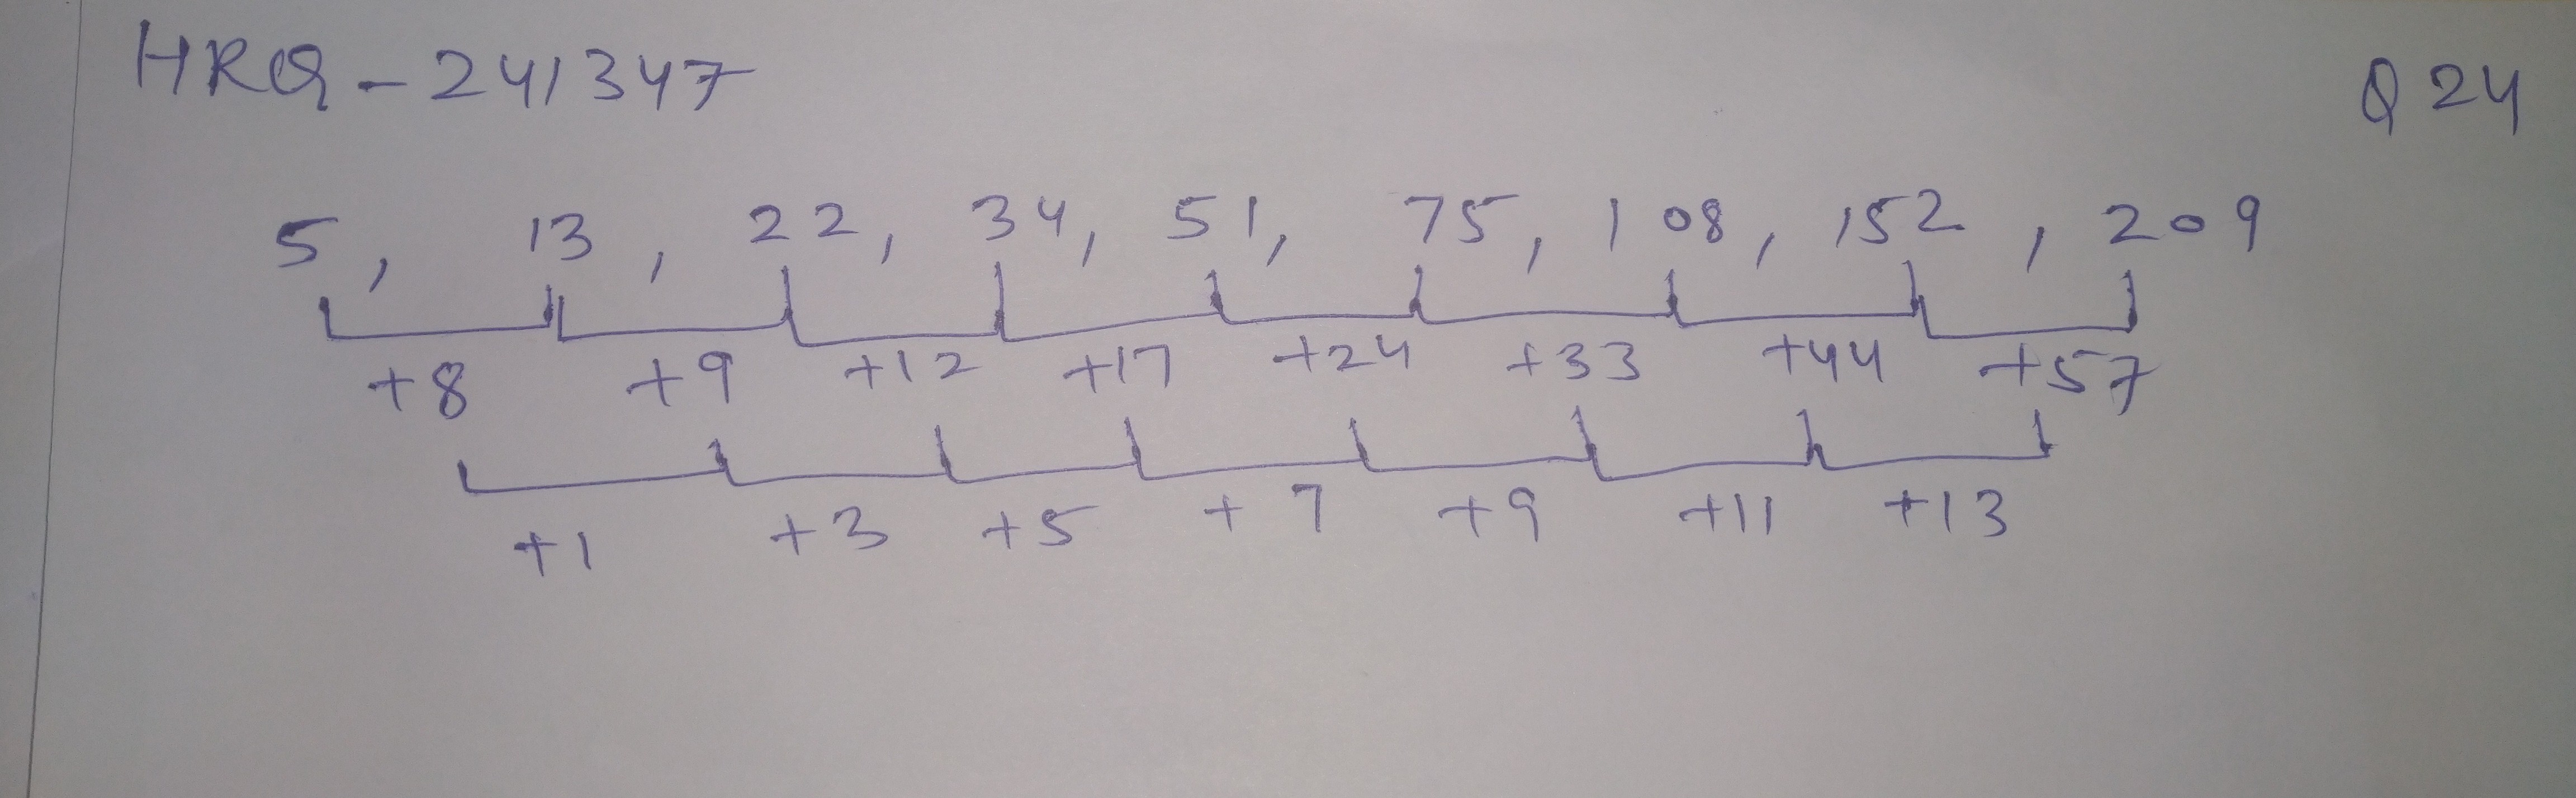 HRQ-241347 Q24
5, 13, 22, 34, 51, 75, 108, 152, 209
+8 +9 +12 +17 +24 +33 +44 +57
+1 +3 +5 +7 +9 +11 +13